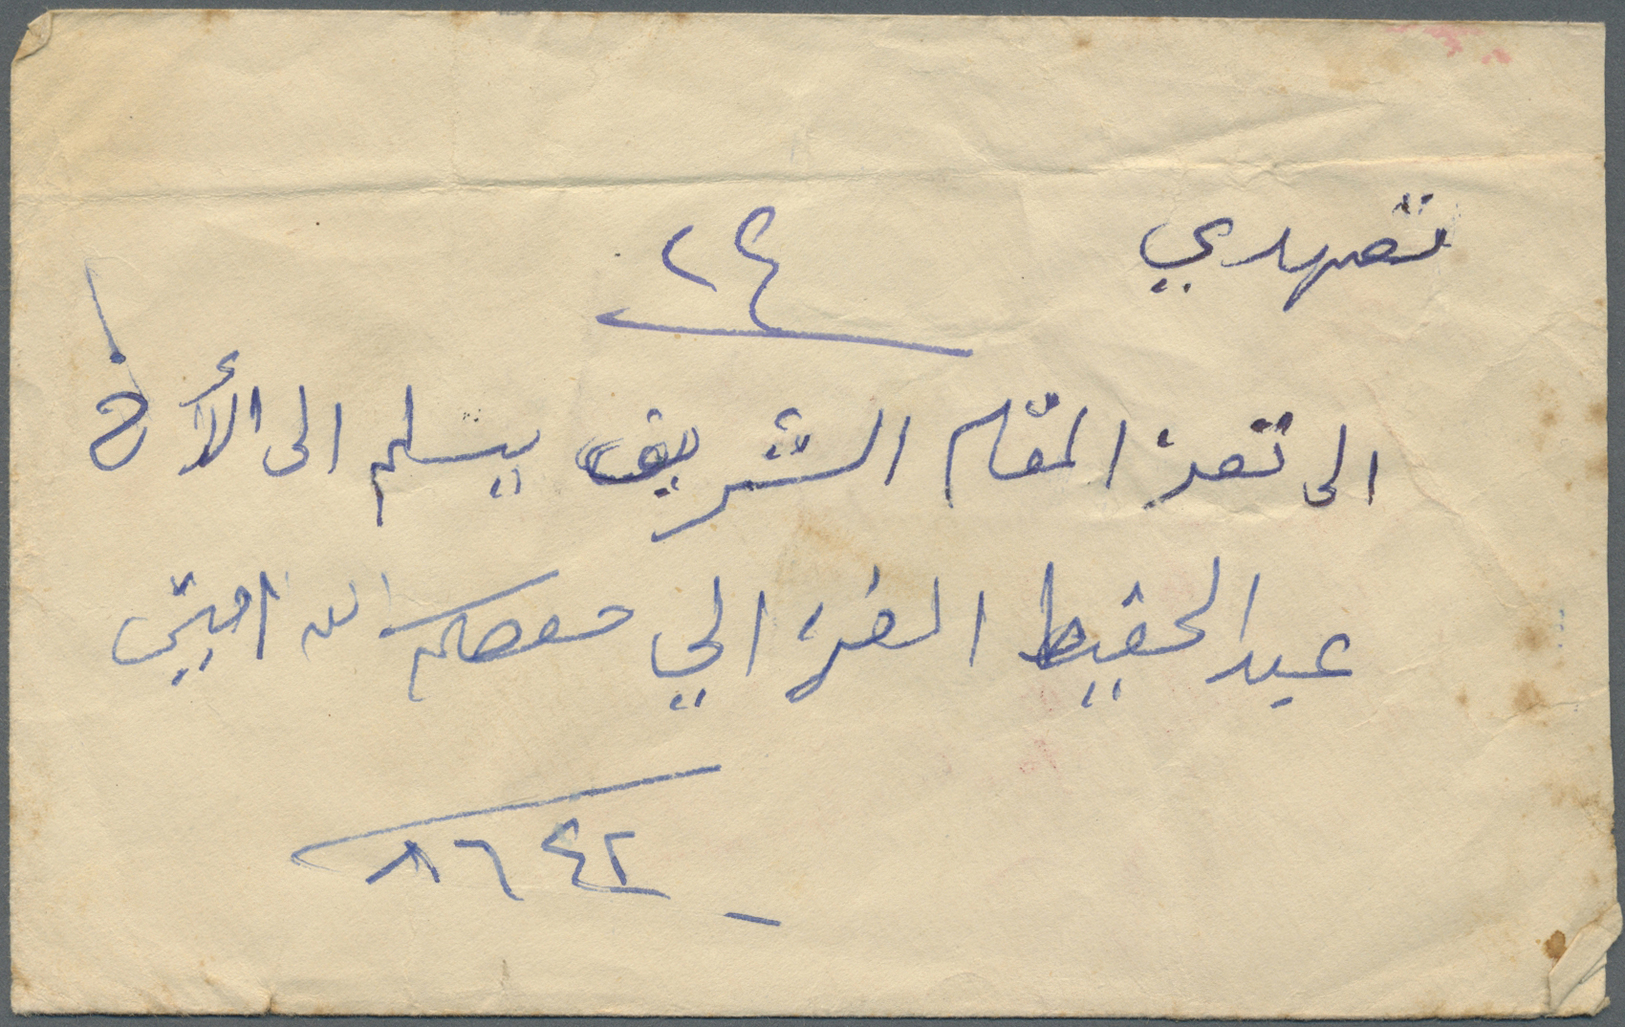 تعهدي
٢٤
الى تعز المقام الشريف يسلم الى الأخ
عبد الحفيظ الغزالي حفضكم الله امين
٢٤٦٨